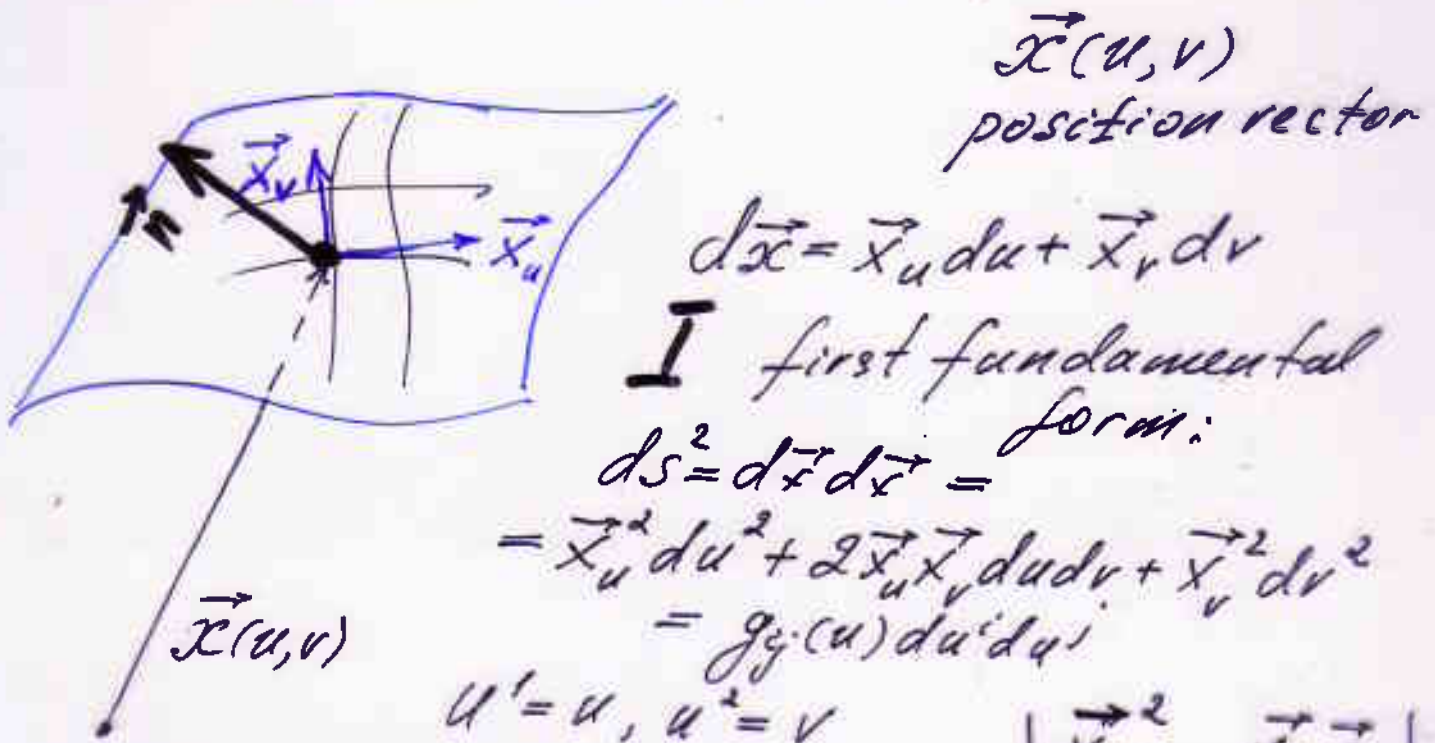 x⃗(u,v)
position vector
x⃗_v
n
x⃗_u
dx⃗ = x⃗_u du + x⃗_v dv
I first fundamental
form:
ds² = dx⃗ dx⃗ =
= x⃗_u² du² + 2x⃗_u x⃗_v du dv + x⃗_v² dv²
= g_ij(u) du^i du^j
x⃗(u,v)
u¹ = u, u² = v